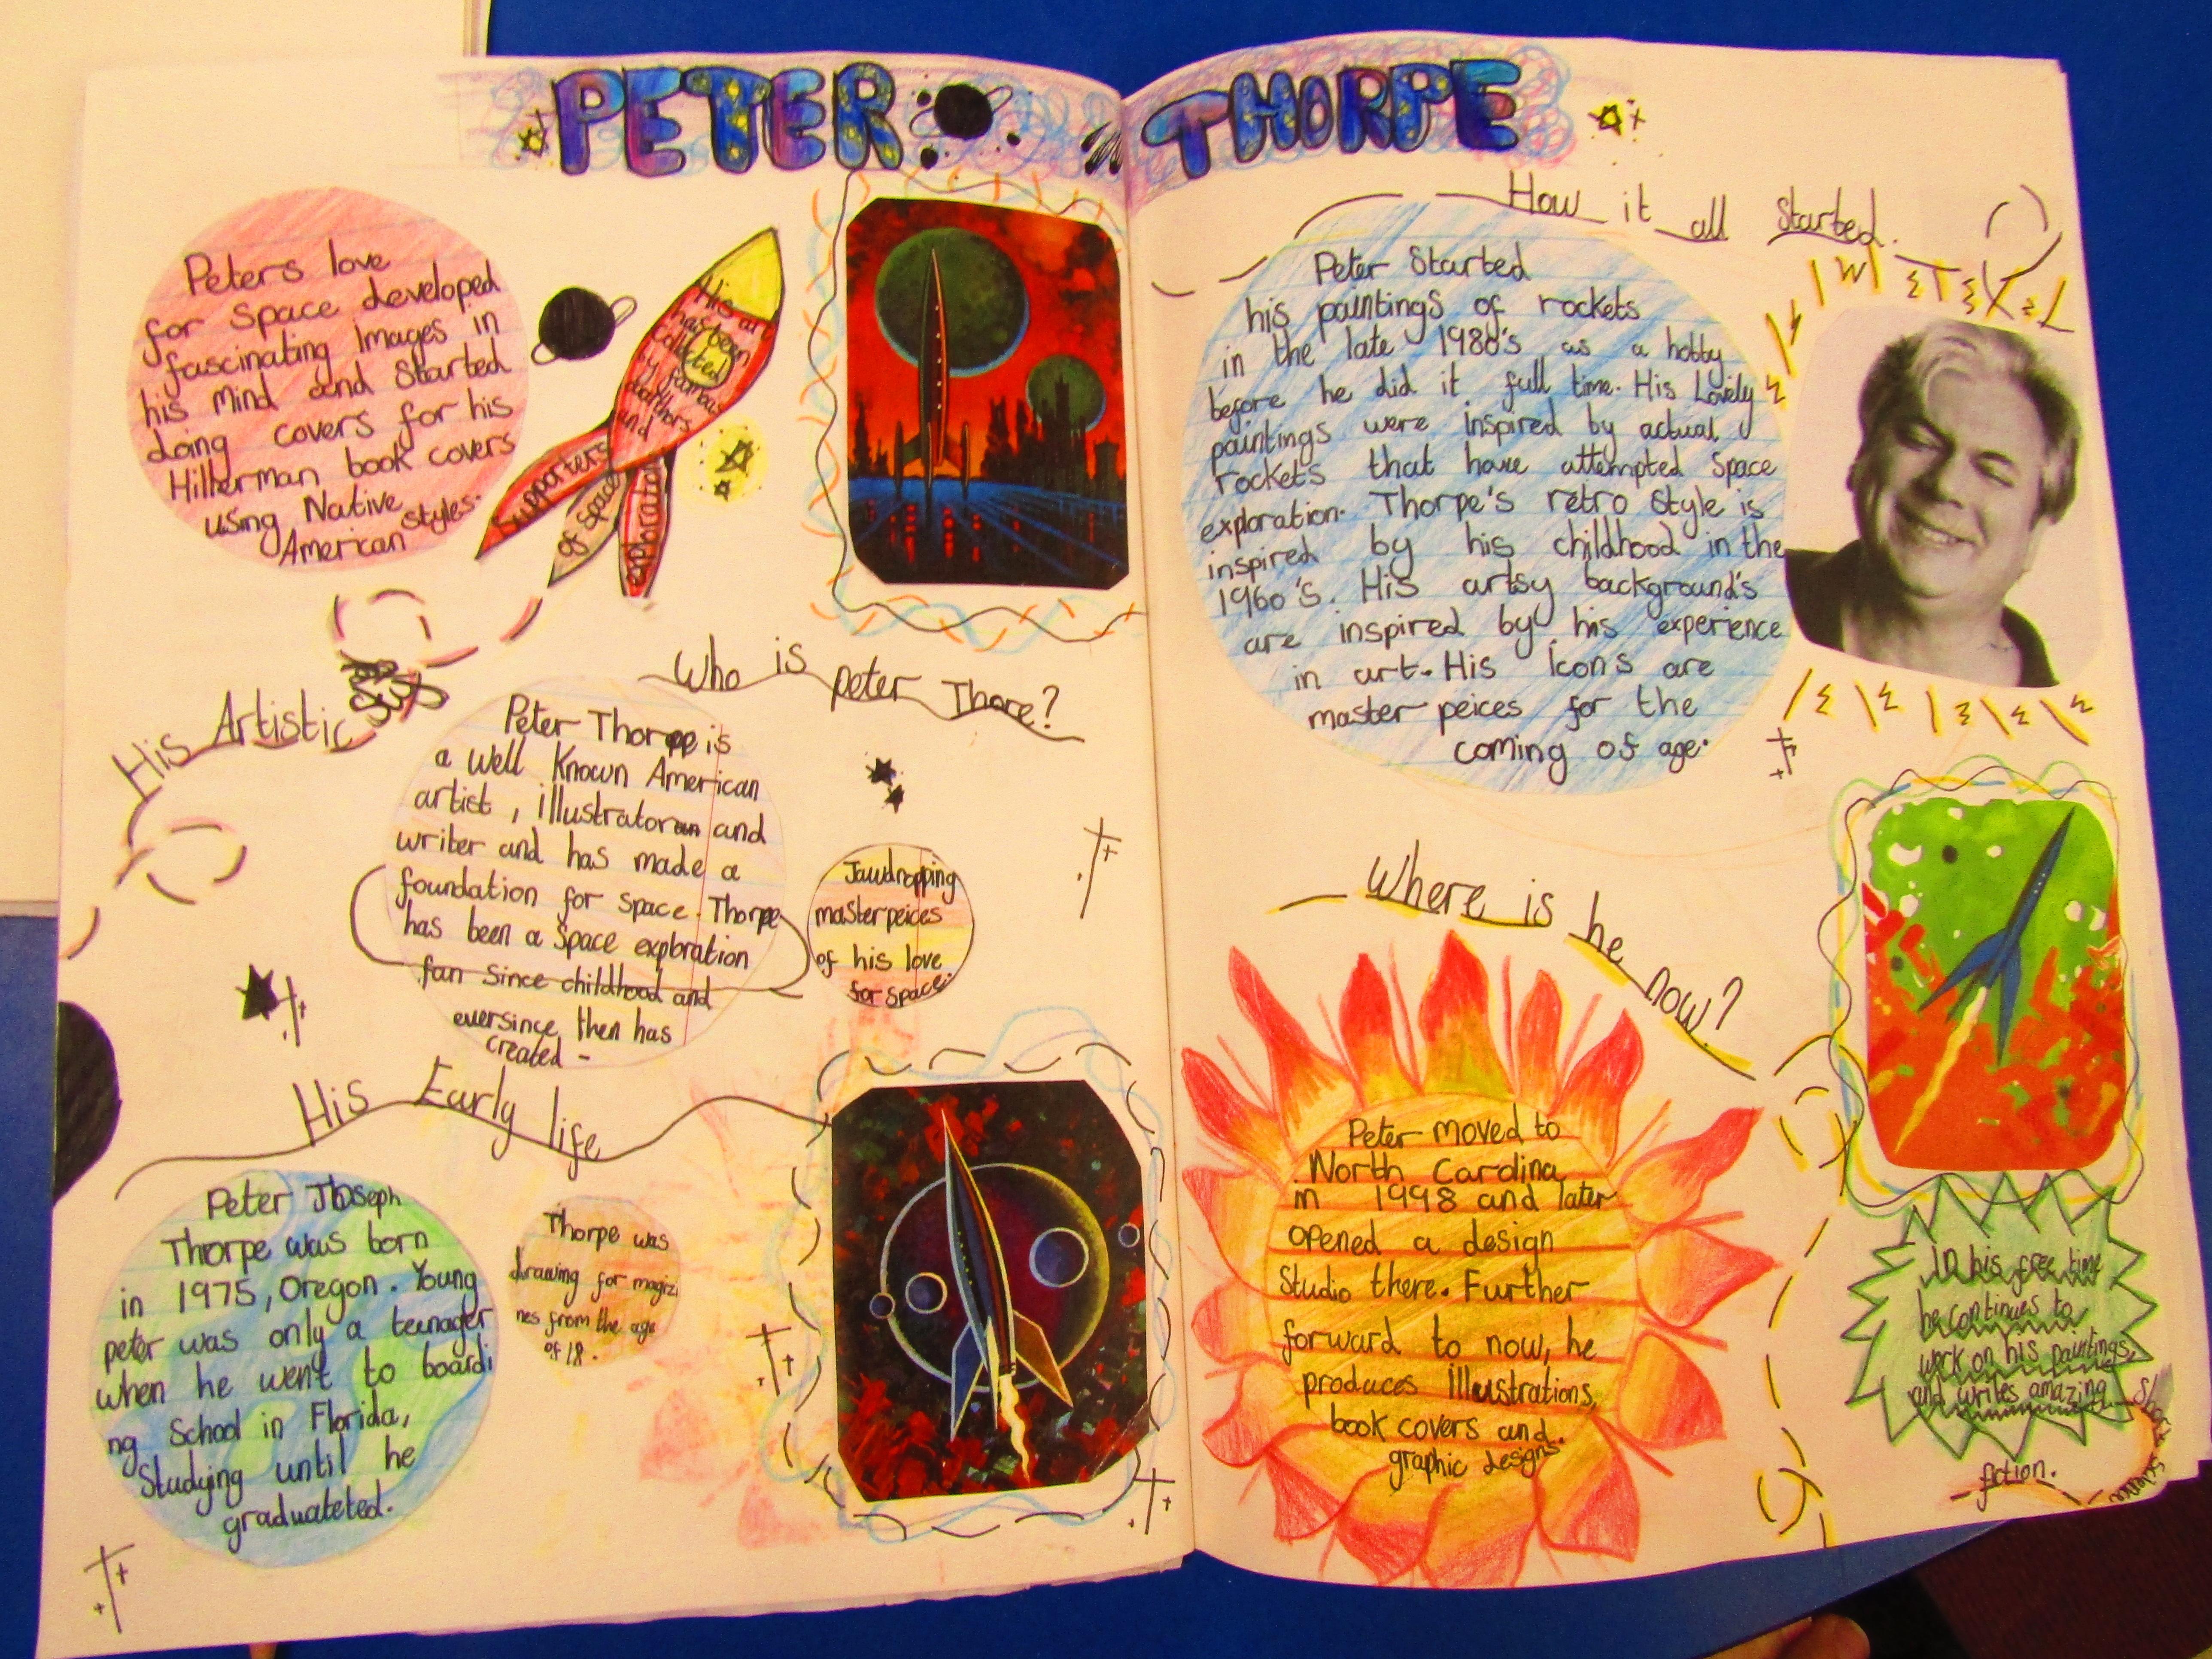 PETER THORPE
Peters love
for Space developed
fascinating Images in
his Mind and Started
doing covers for his
Hillerman book covers
using Native
American styles.
His art
has been
Collected
by famous
authors
and
Supporters
of Space
exploration
Who is peter Thore?
Peter Thorpe is
a well Known American
artist, illustrator and
writer and has made a
foundation for space. Thorpe
has been a Space exploration
fan Since childhood and
eversince then has
created -
Jawdropping
masterpeices
of his love
for space.
His Artistic
His Early life
Peter Joseph
Thorpe was born
in 1975, Oregon. Young
peter was only a teenager
when he went to boardi
ng School in Florida,
Studying until he
graduateted.
Thorpe was
drawing for magizi
nes from the age
of 18.
How it all Started.
Peter Started
his paintings of rockets
in the late 1980's as a hobby
before he did it full time. His Lovely
paintings were inspired by actual
rockets that have attempted Space
exploration. Thorpe's retro Style is
inspired by his childhood in the
1960's. His artsy background's
are inspired by his experience
in art. His Icons are
master peices for the
coming of age.
Where is he now?
Peter moved to
North Carolina
in 1998 and later
opened a design
Studio there. Further
forward to now, he
produces Illustrations,
book covers and
graphic designs.
In his free time
he continues to
work on his paintings,
and writes amazing
Short Science
fiction.